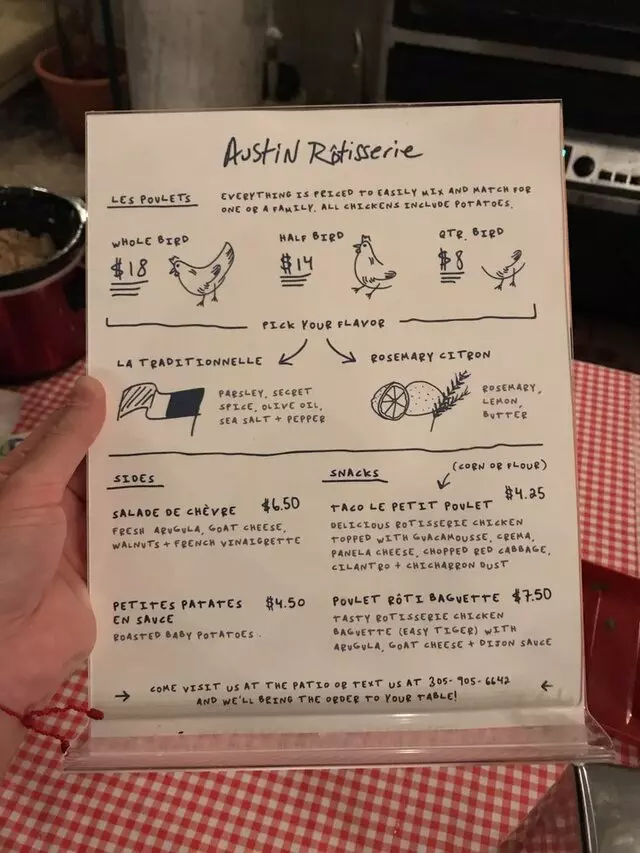 AUSTIN RôTisserie
LES POULETS
EVERYTHING IS PRICED TO EASILY MIX AND MATCH FOR
ONE OR A FAMILY. ALL CHICKENS INCLUDE POTATOES.
WHOLE BIRD
$18
HALF BIRD
$14
QTR. BIRD
$8
PICK YOUR FLAVOR
LA TRADITIONNELLE
PARSLEY, SECRET
SPICE, OLIVE OIL,
SEA SALT + PEPPER
ROSEMARY CITRON
ROSEMARY,
LEMON,
BUTTER
SIDES
SALADE DE CHÈVRE $6.50
FRESH ARUGULA, GOAT CHEESE,
WALNUTS + FRENCH VINAIGRETTE
PETITES PATATES $4.50
EN SAUCE
ROASTED BABY POTATOES.
SNACKS
(CORN OR FLOUR)
TACO LE PETIT POULET $4.25
DELICIOUS ROTISSERIE CHICKEN
TOPPED WITH GUACAMOUSSE, CREMA,
PANELA CHEESE, CHOPPED RED CABBAGE,
CILANTRO + CHICHARRON DUST
POULET RÔTI BAGUETTE $7.50
TASTY ROTISSERIE CHICKEN
BAGUETTE (EASY TIGER) WITH
ARUGULA, GOAT CHEESE + DIJON SAUCE
COME VISIT US AT THE PATIO OR TEXT US AT 305-905-6642
AND WE'LL BRING THE ORDER TO YOUR TABLE!